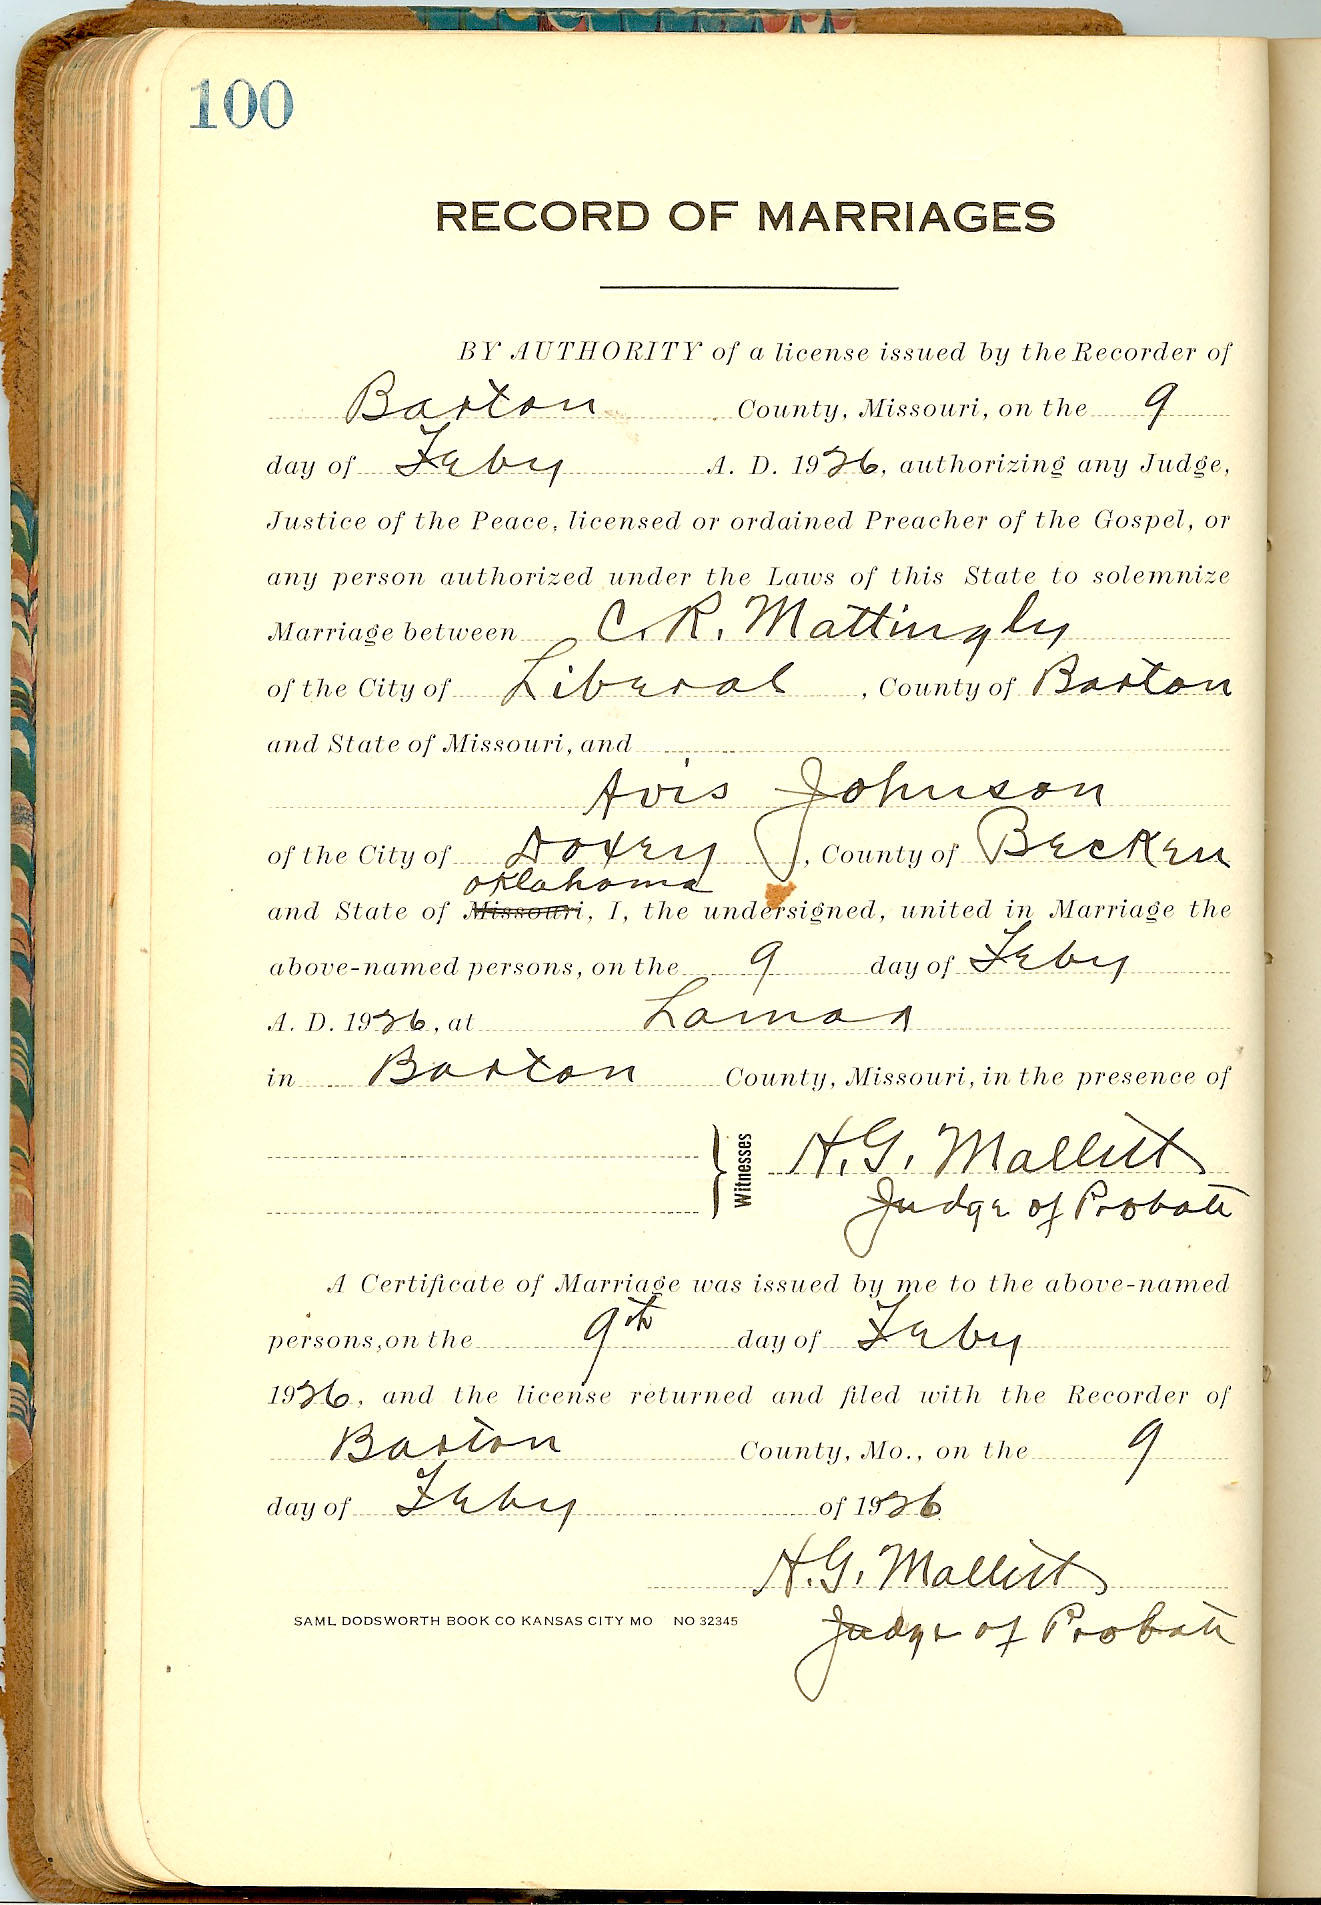 100
RECORD OF MARRIAGES
BY AUTHORITY of a license issued by the Recorder of
Barton County, Missouri, on the 9
day of Feby A. D. 1926, authorizing any Judge,
Justice of the Peace, licensed or ordained Preacher of the Gospel, or
any person authorized under the Laws of this State to solemnize
Marriage between C. R. Mattingly
of the City of Liberal, County of Barton
and State of Missouri, and
Avis Johnson
of the City of Doxey, County of Becken
Oklahoma
and State of Missouri, I, the undersigned, united in Marriage the
above-named persons, on the 9 day of Feby
A. D. 1926, at Lamar
in Barton County, Missouri, in the presence of
Witnesses H. G. Mallitt
Judge of Probate
A Certificate of Marriage was issued by me to the above-named
persons, on the 9th day of Feby
1926, and the license returned and filed with the Recorder of
Barton County, Mo., on the 9
day of Feby of 1926
H. G. Mallitt
SAML DODSWORTH BOOK CO KANSAS CITY MO NO 32345
Judge of Probate